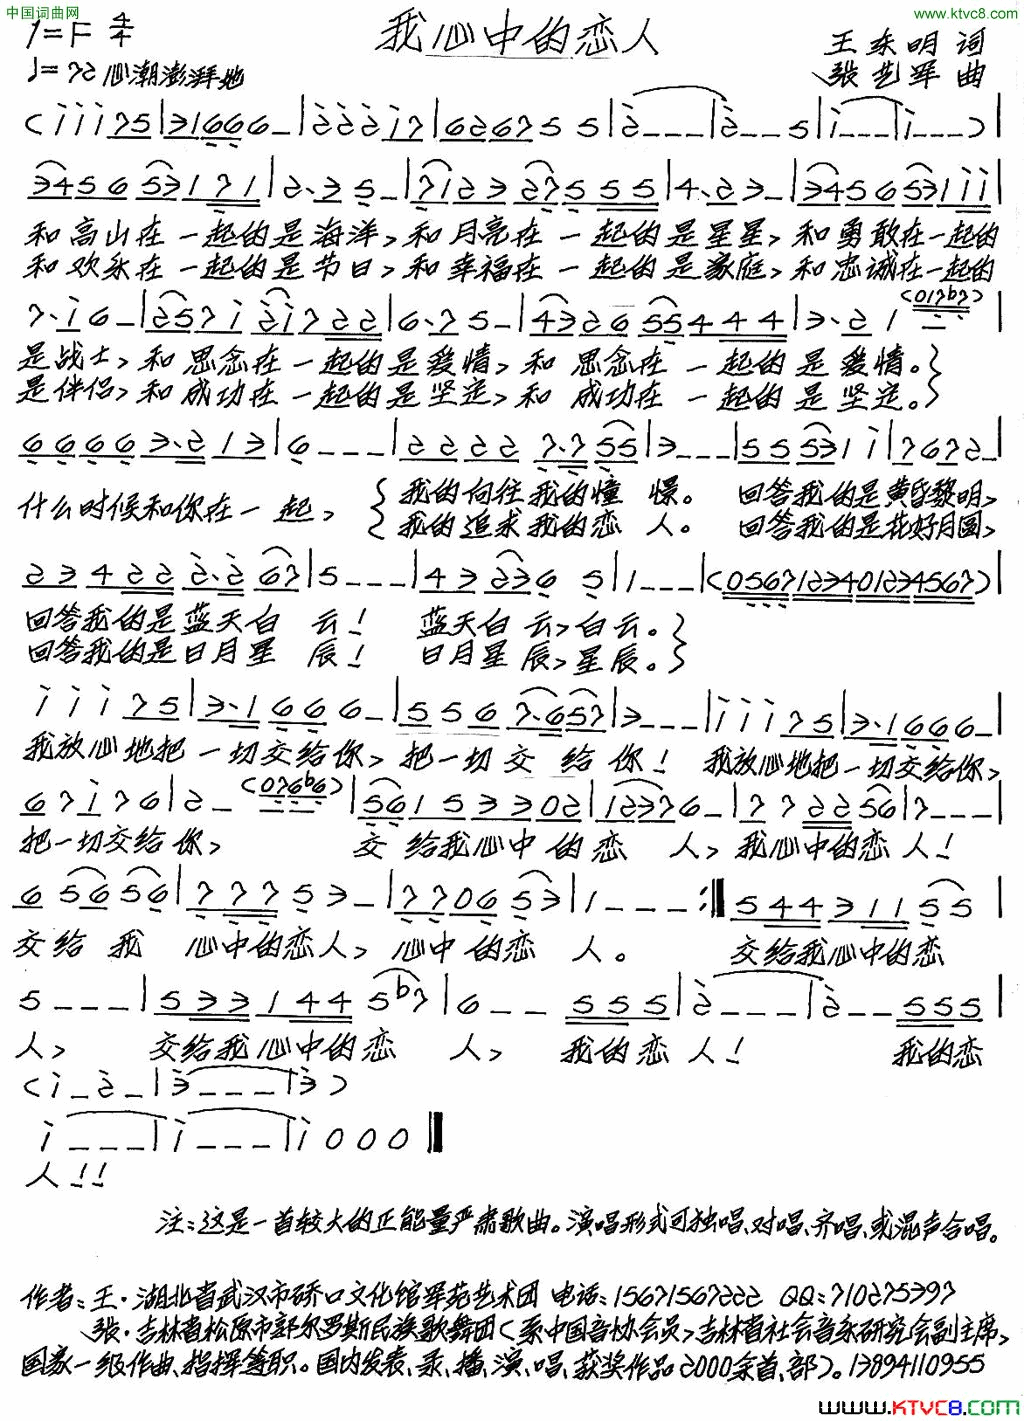 中国词曲网
www.ktvc8.com
1=F 4/4
我心中的恋人
王东明 词
♩=72 心潮澎湃地
张艺军 曲
和高山在一起的是海洋,和月亮在一起的是星星,和勇敢在一起的
和欢乐在一起的是节日,和幸福在一起的是家庭,和忠诚在一起的
是战士,和思念在一起的是爱情,和思念在一起的是爱情。}
是伴侣,和成功在一起的是坚定,和成功在一起的是坚定。}
什么时候和你在一起,{我的向往我的憧憬。回答我的是黄昏黎明,
{我的追求我的恋人。回答我的是花好月圆,
回答我的是蓝天白云! 蓝天白云,白云。}
回答我的是日月星辰! 日月星辰,星辰。}
我放心地把一切交给你,把一切交给你! 我放心地把一切交给你,
把一切交给你, 交给我心中的恋人,我心中的恋人!
交给我心中的恋人,心中的恋人。 交给我心中的恋
人, 交给我心中的恋人, 我的恋人! 我的恋
人!!
注:这是一首较大的正能量严肃歌曲。演唱形式可独唱、对唱、齐唱、或混声合唱。
作者:王·湖北省武汉市硚口文化馆军苑艺术团 电话:15671567222 QQ:710275397
张·吉林省松原市郭尔罗斯民族歌舞团(系中国音协会员,吉林省社会音乐研究会副主席,
国家一级作曲、指挥等职。国内发表、录、播、演、唱、获奖作品2000余首、部)。13894110955
www.KTVC8.com